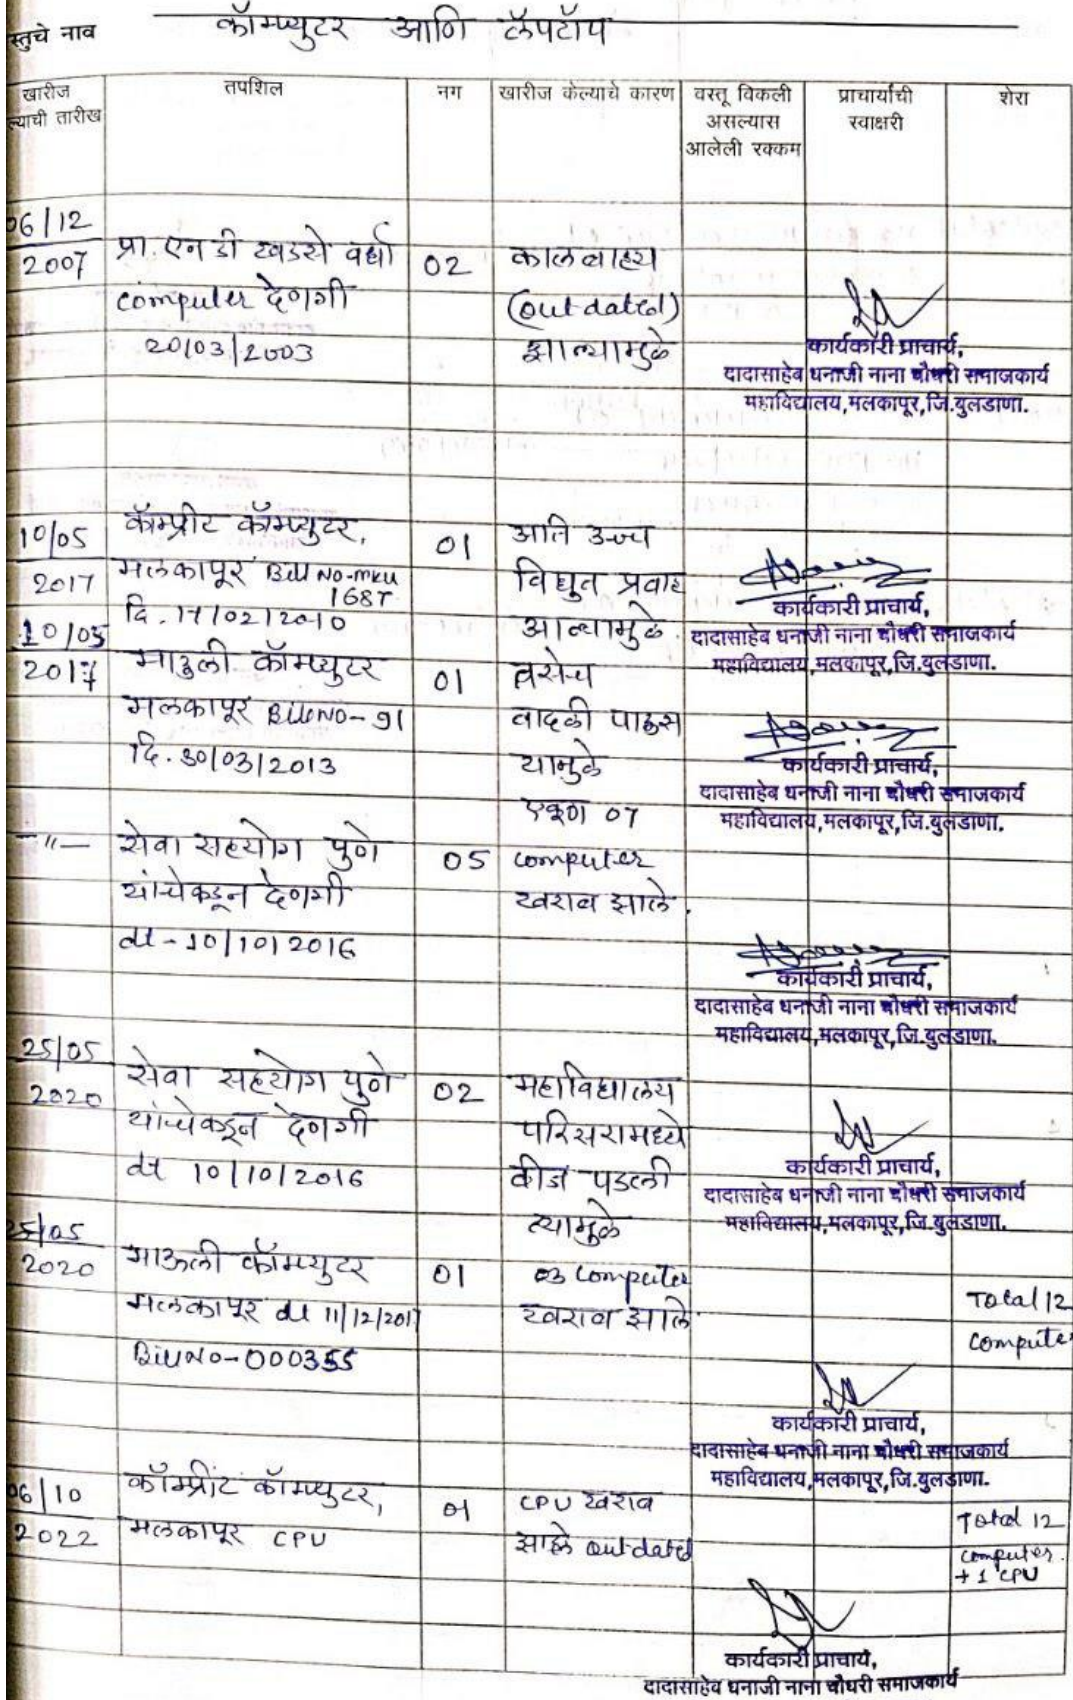 स्तुचे नाव कॉम्प्युटर आणि लॅपटॉप
खारीज
ल्याची तारीख
तपशिल
नग
खारीज केल्याचे कारण
वस्तू विकली
असल्यास
आलेली रक्कम
प्राचार्यांची
स्वाक्षरी
शेरा
06/12
2007
प्रा. एन डी खडसे वर्धा
computer देणगी
20/03/2003
02
कालबाहय
(out dated)
झाल्यामुळे
कार्यकारी प्राचार्य,
दादासाहेब धनाजी नाना चौधरी समाजकार्य
महाविद्यालय,मलकापूर,जि.बुलडाणा.
10/05
2017
कॉम्प्रीट कॉम्प्युटर,
मलकापूर Bill No-mku
1687
दि. 17/02/2010
01
अति उच्च
विद्युत प्रवाह
आल्यामुळे
कार्यकारी प्राचार्य,
दादासाहेब धनाजी नाना चौधरी समाजकार्य
महाविद्यालय,मलकापूर,जि.बुलडाणा.
10/05
2017
माउली कॉम्प्युटर
मलकापूर Bill No-91
दि. 30/03/2013
01
तसेच
वादळी पाऊस
यामुळे
एकूण 07
कार्यकारी प्राचार्य,
दादासाहेब धनाजी नाना चौधरी समाजकार्य
महाविद्यालय,मलकापूर,जि.बुलडाणा.
-"-
सेवा सहयोग पुणे
यांचेकडून देणगी
dt - 10/10/2016
05
computer
खराब झाले.
कार्यकारी प्राचार्य,
दादासाहेब धनाजी नाना चौधरी समाजकार्य
महाविद्यालय,मलकापूर,जि.बुलडाणा.
25/05
2020
सेवा सहयोग पुणे
यांचेकडून देणगी
dt 10/10/2016
02
महाविद्यालय
परिसरामध्ये
वीज पडली
त्यामुळे
कार्यकारी प्राचार्य,
दादासाहेब धनाजी नाना चौधरी समाजकार्य
महाविद्यालय,मलकापूर,जि.बुलडाणा.
25/05
2020
माऊली कॉम्प्युटर
मलकापूर dt 11/12/2017
Bill No-000355
01
03 computer
खराब झाले
Total 12
Compute
कार्यकारी प्राचार्य,
दादासाहेब धनाजी नाना चौधरी समाजकार्य
महाविद्यालय,मलकापूर,जि.बुलडाणा.
06/10
2022
कॉम्प्रीट कॉम्प्युटर,
मलकापूर CPU
01
CPU खराब
झाले outdated
Total 12
computer.
+ 1 CPU
कार्यकारी प्राचार्य,
दादासाहेब धनाजी नाना चौधरी समाजकार्य